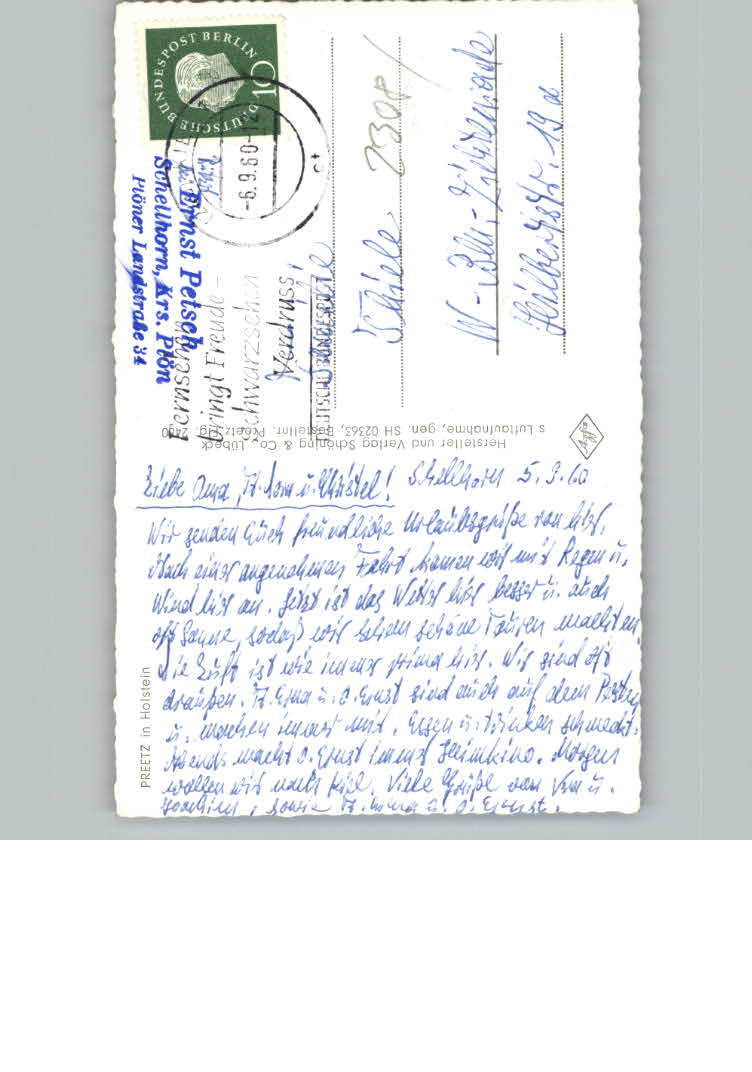 DEUTSCHE BUNDESPOST BERLIN
10
-6.9.60-12
Fernsehen
bringt Freude-
Schwarzsehen
Verdruss
DEUTSCHE BUNDESPOST
bei Ernst Petsch
Schellhorn, Krs. Plön
Plöner Landstraße 34
2308/
Familie
Thiele
W-Bln-Lichterfelde
Hildburgstr. 19a
Hersteller und Verlag Schöning & Co., Lübeck
s Luftaufnahme, gen. SH 02363, Bestellnr. Preetz
Agfa
PREETZ in Holstein
Schellhorn 5.9.60
Liebe Oma, u. Christel!
Wir senden Euch freundliche Urlaubsgrüße von hier.
Nach einer angenehmen Fahrt kamen wir mit Regen u.
Wind hier an. Jetzt ist das Wetter hier besser u. auch
oft Sonne, sodaß wir schon schöne Touren machten.
Die Luft ist wie immer prima hier. Wir sind oft
draußen. T. Erna u. O. Ernst sind auch auf dem Posten
u. machen immer mit. Essen u. trinken schmeckt.
Abends macht O. Ernst immer Heimkino. Morgen
wollen wir nach Kiel. Viele Grüße von u.
Joachim, sowie T. Erna u. O. Ernst.